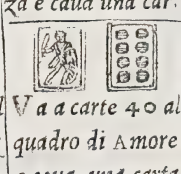 za e caua una car.
Va a carte 40 al
quadro di Amore
e caua una carta